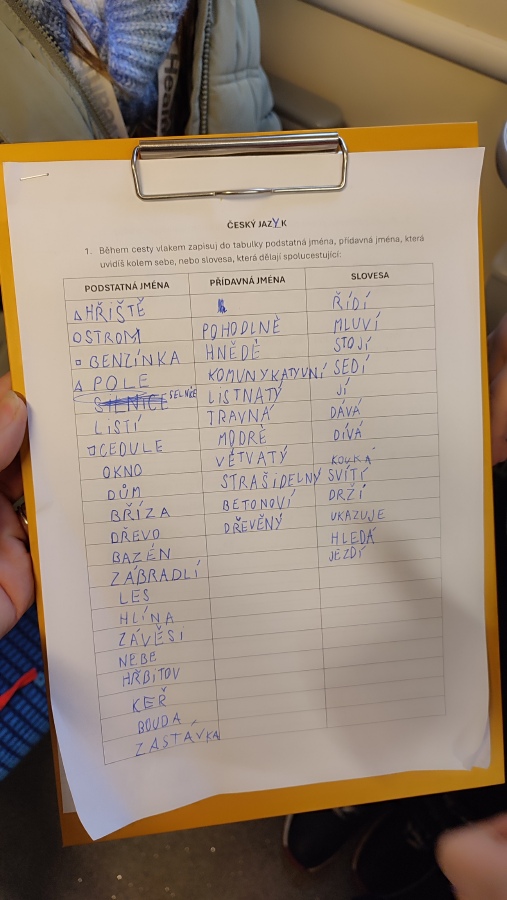 ČESKÝ JAZYK
1. Během cesty vlakem zapisuj do tabulky podstatná jména, přídavná jména, která
uvidíš kolem sebe, nebo slovesa, která dělají spolucestující:
PODSTATNÁ JMÉNA PŘÍDAVNÁ JMÉNA SLOVESA
HŘIŠTĚ ŘÍDÍ
STROM POHODLNÉ MLUVÍ
BENZÍNKA HNĚDÉ STOJÍ
POLE KOMUNYKATYVNÍ SEDÍ
SILNICE LISTNATÝ JÍ
LISTÍ TRAVNÁ DÁVÁ
CEDULE MODRÉ DÍVÁ
OKNO VĚTVATÝ KOUKÁ
DŮM STRAŠIDELNÝ SVÍTÍ
BŘÍZA BETONOVÍ DRŽÍ
DŘEVO DŘEVĚNÝ UKAZUJE
BAZÉN HLEDÁ
ZÁBRADLÍ JEZDÍ
LES
HLÍNA
ZÁVĚSI
NEBE
HŘBITOV
KEŘ
BOUDA
ZASTÁVKA